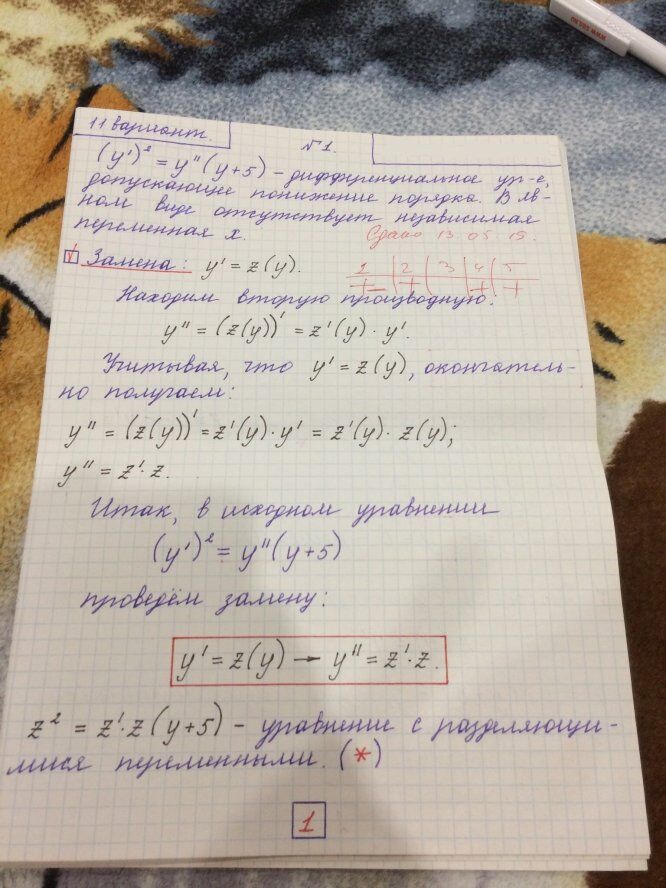 11 вариант.
№1.
(y')² = y''(y+5) - дифференциальное ур-е,
допускающее понижение порядка. В яв-
ном виде отсутствует независимая
переменная x.
Сдано 13.05.19.
1 2 3 4 5
+− + + +
√ Замена: y' = z(y).
Находим вторую производную:
y'' = (z(y))' = z'(y)·y'.
Учитывая, что y' = z(y), окончатель-
но получаем:
y'' = (z(y))' = z'(y)·y' = z'(y)·z(y);
y'' = z'·z.
Итак, в исходном уравнении
(y')² = y''(y+5)
проведём замену:
y' = z(y) → y'' = z'·z.
z² = z'·z(y+5) - уравнение с разделяющи-
мися переменными. (*)
1